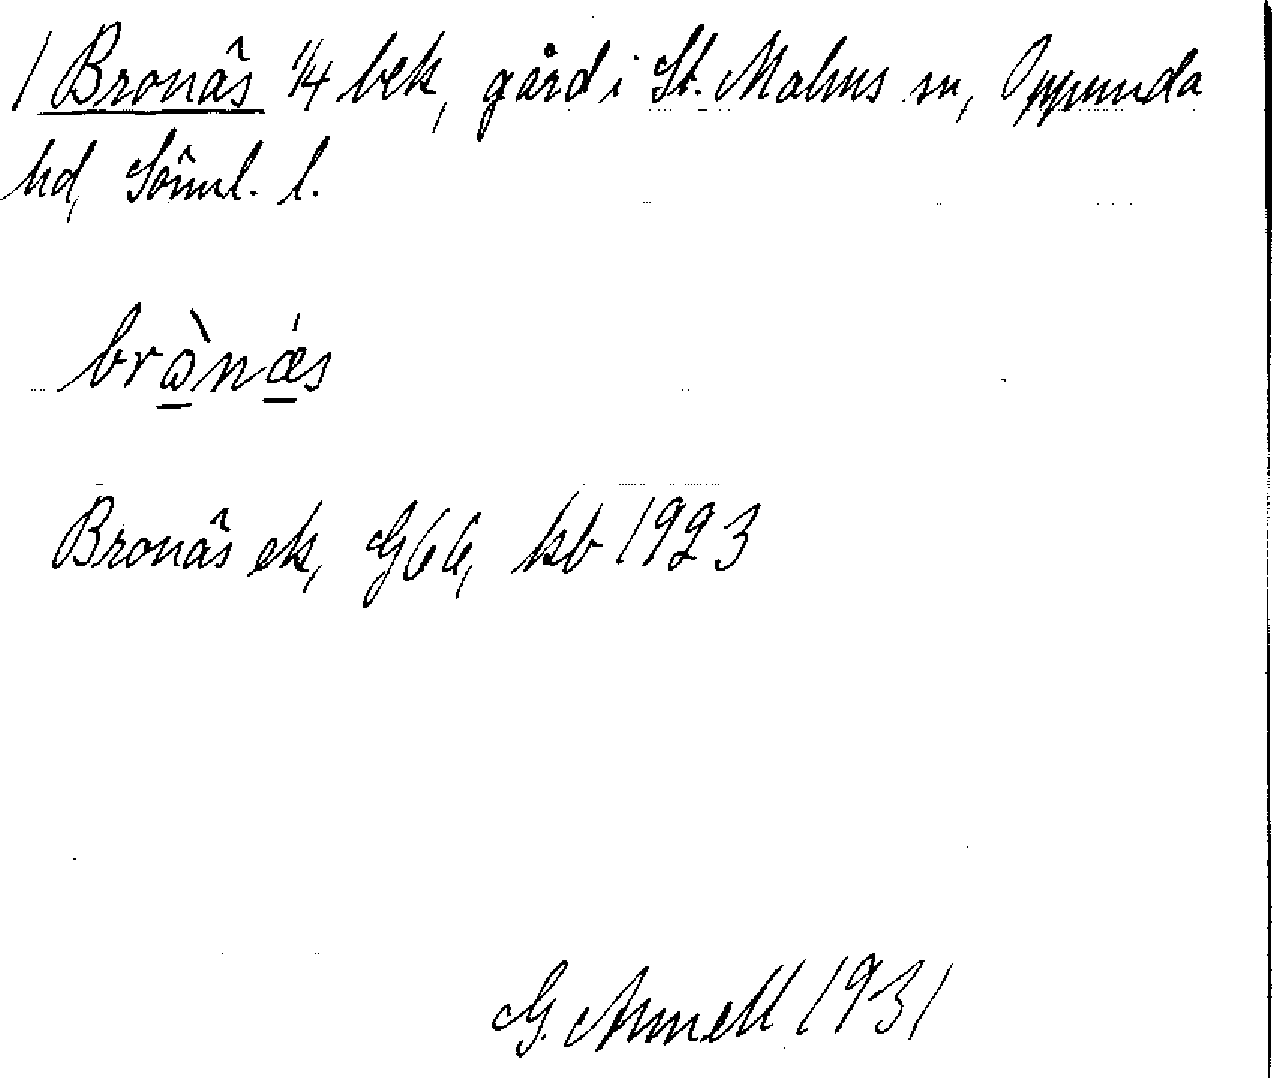 1 Bronäs 1/4 bek, gård i St. Malms sn, Oppunda
hd, Söml. l.
brὼ̱nǽ̱s
Bronäs ek, G66, kb 1923
G. Armell 1931